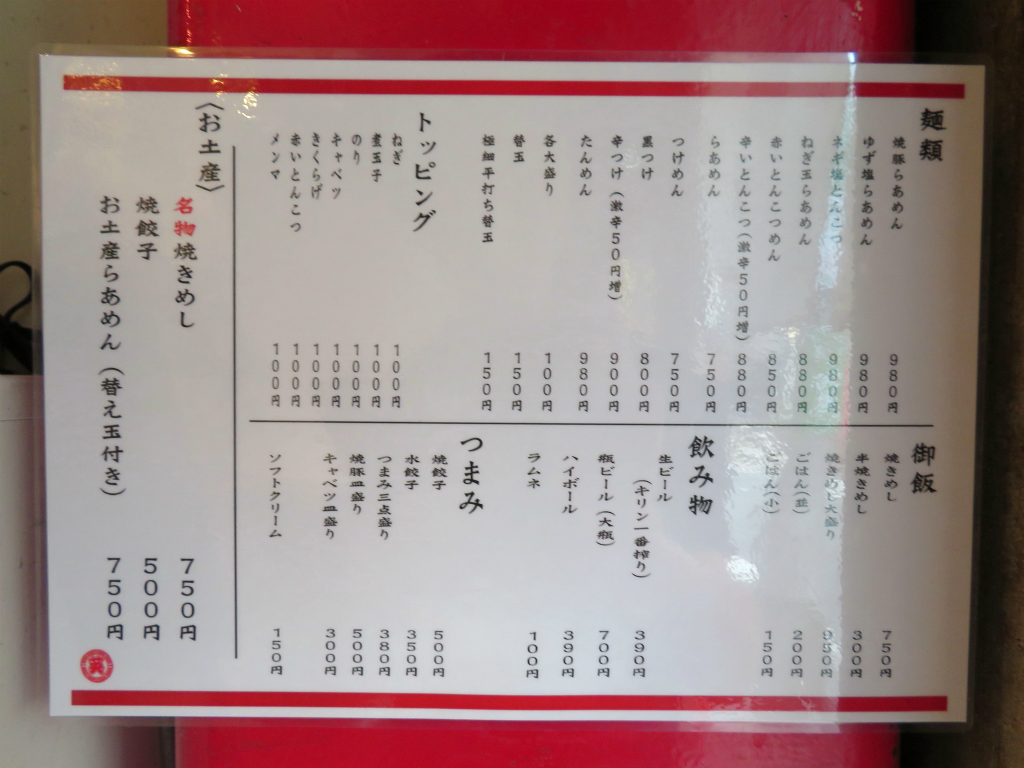 麺類
焼豚らあめん 980円
ゆず塩らあめん 980円
ネギ塩とんこつ 980円
ねぎ玉らあめん 880円
赤いとんこつめん 850円
辛いとんこつ(激辛50円増) 880円
らあめん 750円
つけめん 750円
黒つけ 800円
辛つけ(激辛50円増) 900円
たんめん 980円
各大盛り 100円
替玉 150円
極細平打ち替玉 150円
トッピング
ねぎ 100円
煮玉子 100円
のり 100円
キャベツ 100円
きくらげ 100円
赤いとんこつ 100円
メンマ 100円
御飯
焼きめし 750円
半焼きめし 300円
焼きめし大盛り 950円
ごはん(並) 200円
ごはん(小) 150円
飲み物
生ビール
(キリン一番搾り) 390円
瓶ビール(大瓶) 700円
ハイボール 390円
ラムネ 100円
つまみ
焼餃子 500円
水餃子 350円
つまみ三点盛り 380円
焼豚皿盛り 500円
キャベツ皿盛り 300円
ソフトクリーム 150円
(お土産)
名物焼きめし 750円
焼餃子 500円
お土産らあめん(替え玉付き) 750円